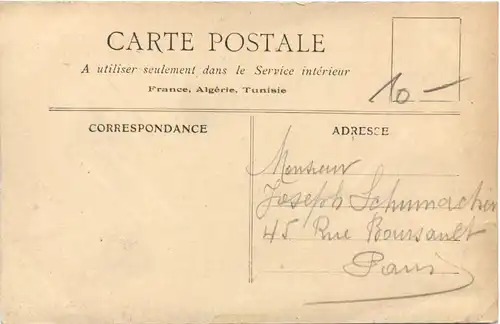 CARTE POSTALE
A utiliser seulement dans le Service intérieur
France, Algérie, Tunisie
10 —
CORRESPONDANCE
ADRESSE
Monsieur
Joseph Schumacher
45 Rue Boursault
Paris